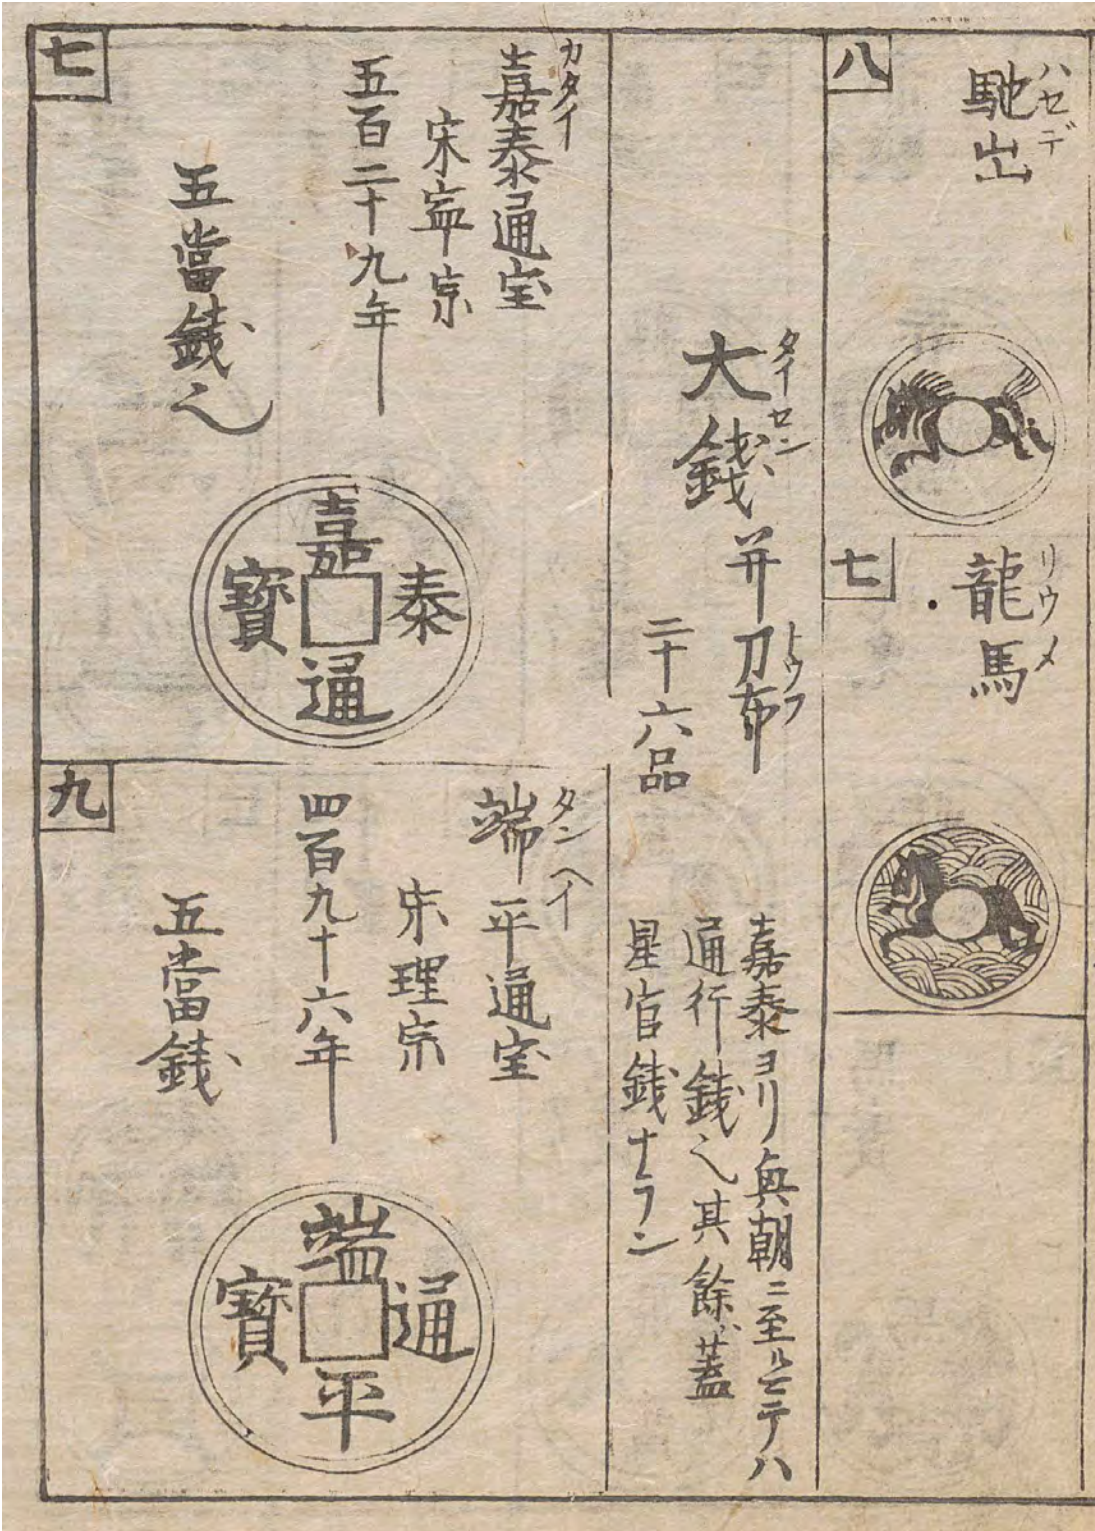 八
馳出
ハセデ
七
龍馬
リウメ
大錢并刀布
タイセン
トウフ
二十六品
嘉泰ヨリ興朝ニ至ルヒテハ
通行錢之其餘蓋
星官錢ナラン
七
嘉泰通宝
カタイ
宋寧宗
五百二十九年
五當錢之
嘉泰通寳
九
端平通宝
タンヘイ
宋理宗
四百九十六年
五當錢
端平通寳